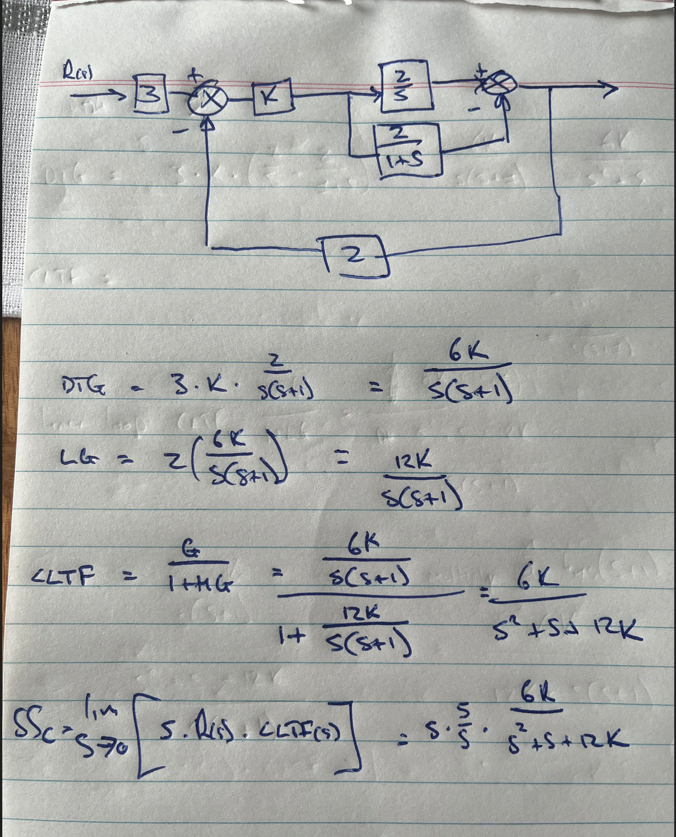 R(s)
3 + - X K 2/s + - X
2/(1+s)
2
DTG = 3 · K · 2/(s(s+1)) = 6K/(s(s+1))
LG = 2(6K/(s(s+1))) = 12K/(s(s+1))
CLTF = G/(1+HG) = (6K/(s(s+1)))/(1+ 12K/(s(s+1))) = 6K/(s²+s+12K)
SSc = lim s→0 [s · R(s) · CLTF(s)] = s · 5/s · 6K/(s²+s+12K)